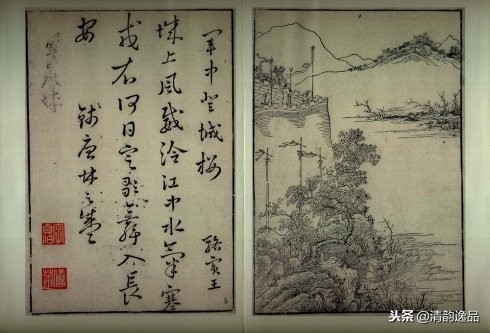 軍中登城樓 駱賓王
城上風威冷江中水氣寒
戎衣何日定歌舞入長
安 錢唐林之盛
头条 @清韵逸品